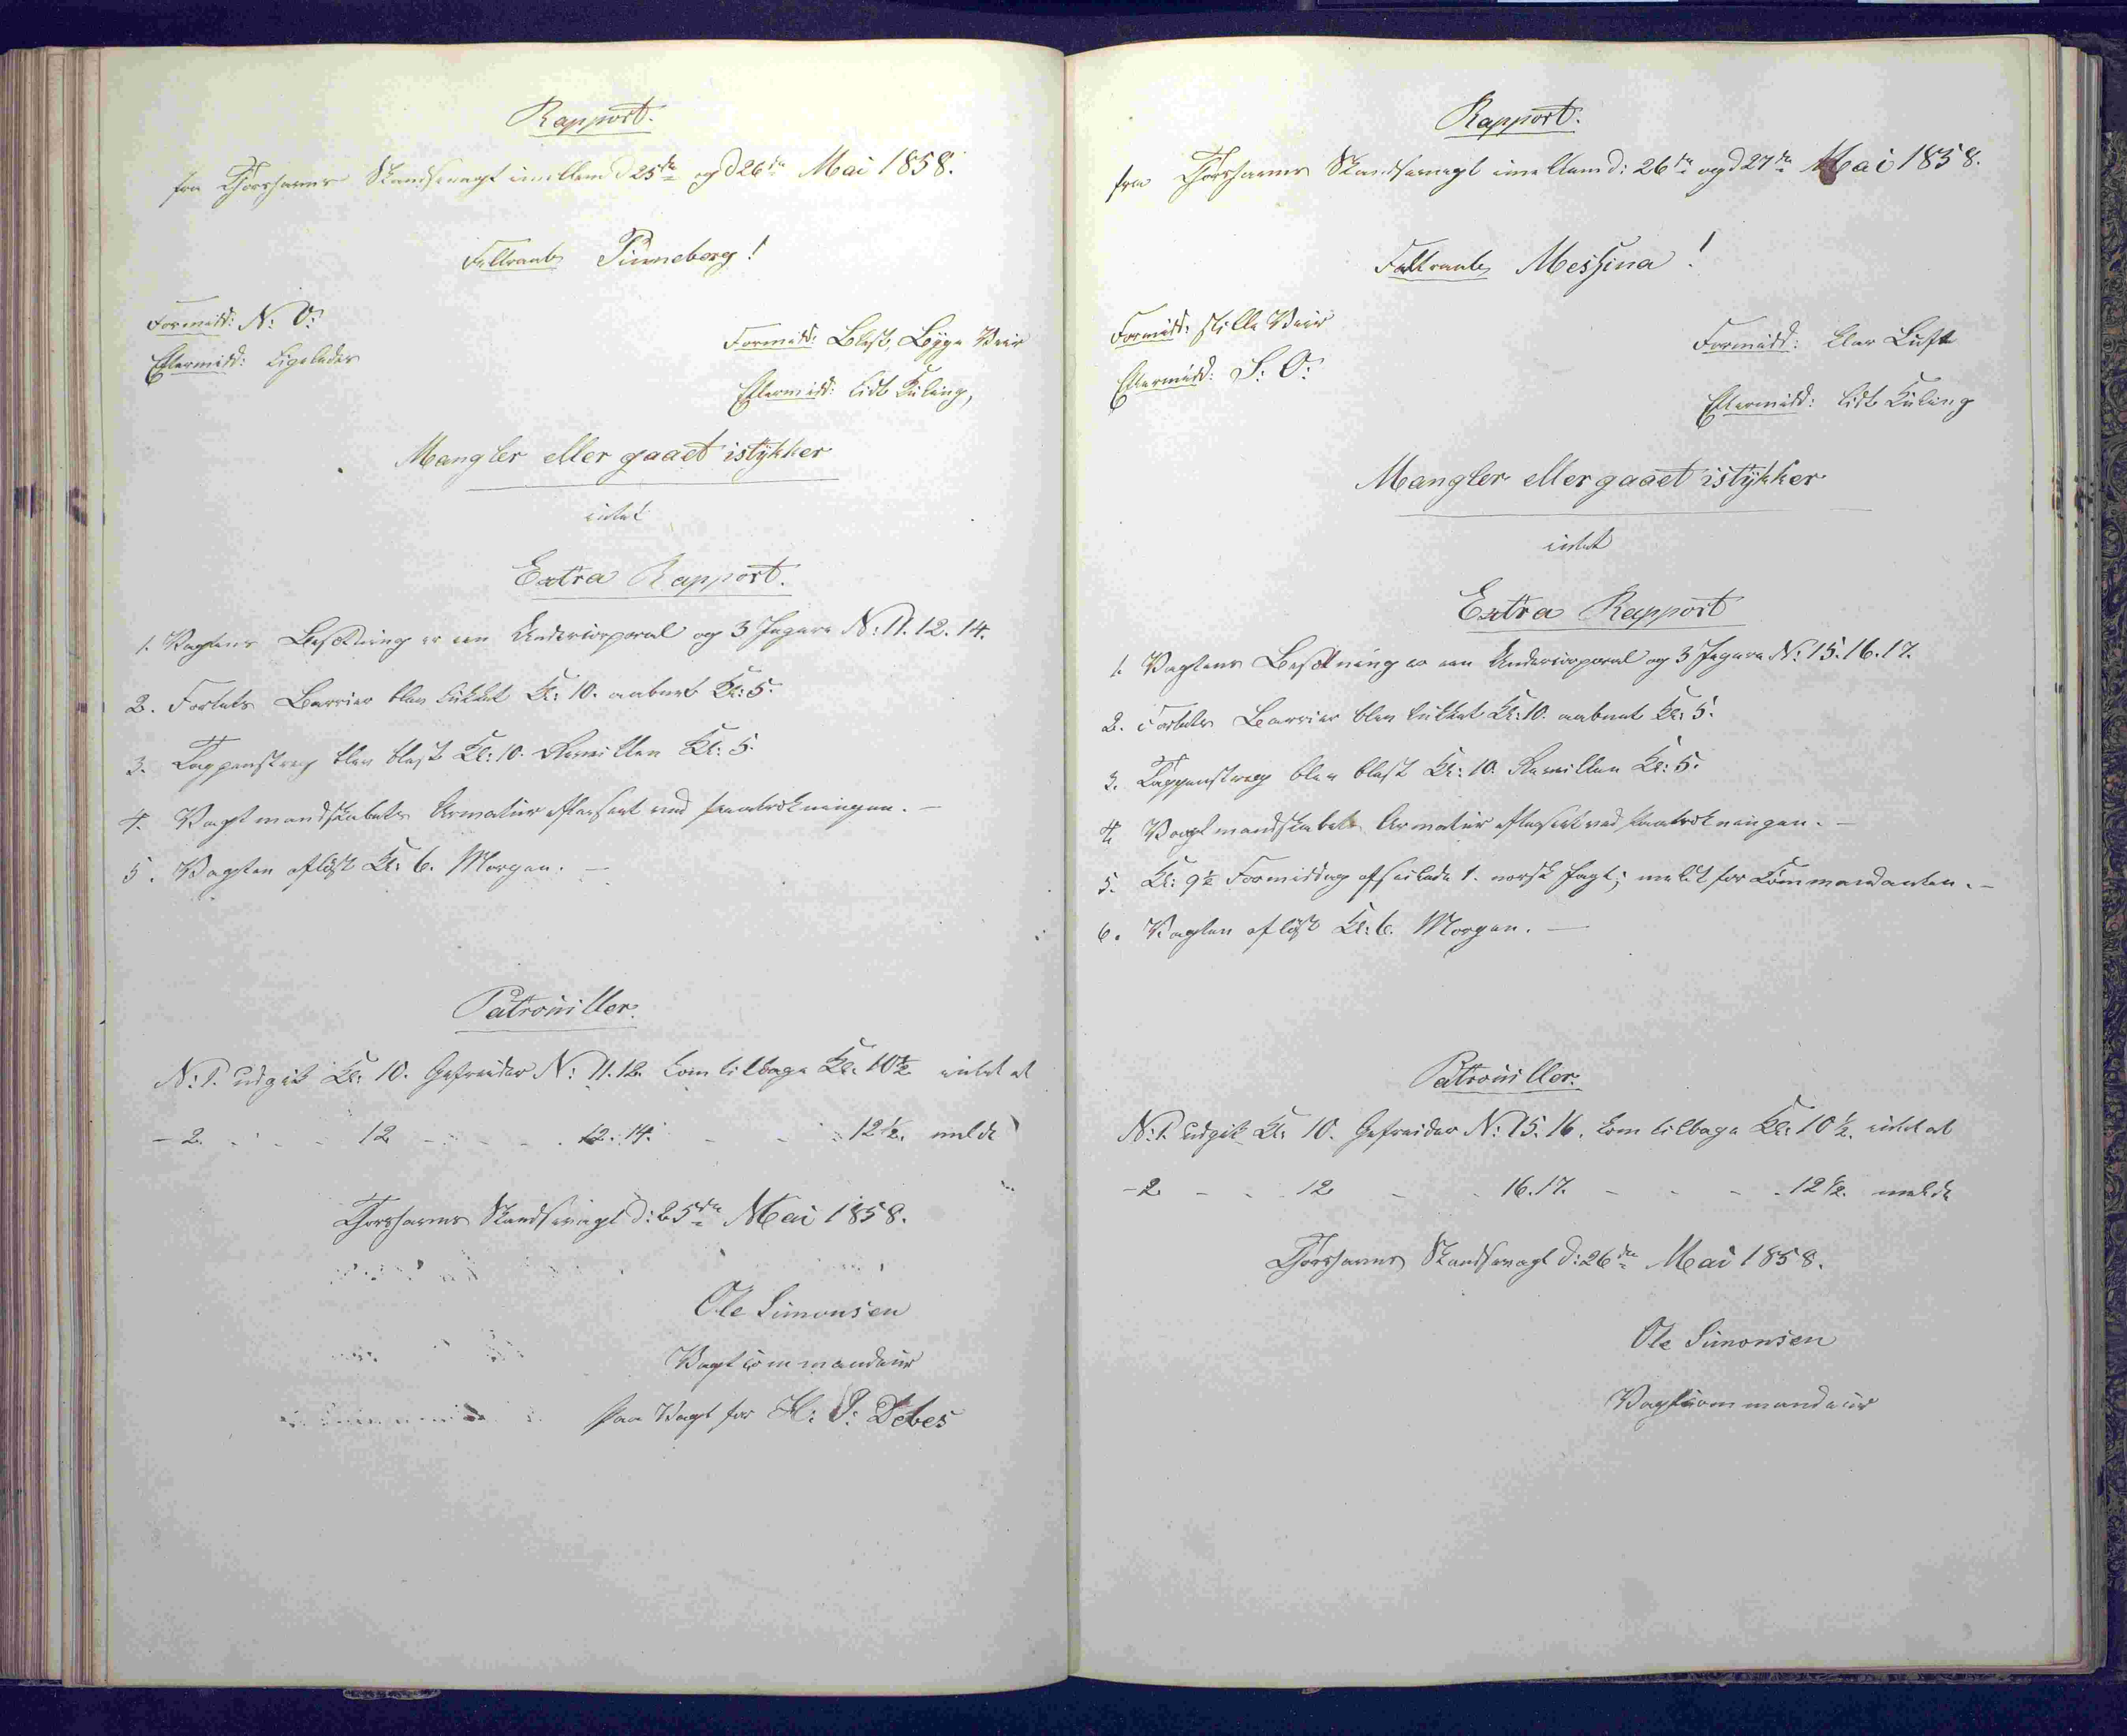 Rapport.
fra Thorshavns Skandsevagt imellem d 25de og d 26de Mai 1858.
Feltraab Pinneberg!
Formidd: N: O:
Eftermidd: Ligeledes
Formidd: Blæst, Bÿge Veir
Eftermidd: lidt Kuling,
Mangler eller gaaet istÿkker
intet
Extra Rapport.
1. Vagtens Besætning er een Undercorporal og 3 Jægere N: 11. 12. 14.
2. Fortets Barrier blev lukket Kl: 10. aabnet Kl: 5.
3. Tappenstreg blev blæst Kl: 10. Reveillen Kl: 5.
4. Vagtmandskabets Armatur efterseet ved paatrækningen. —
5. Vagten afløst Kl: 6. Morgen. —
Patrouiller.
N: 1. udgik Kl: 10. Gefreider N: 11. 12. kom tilbage Kl: 10½ intet at
- 2. - - - 12 - - - - 12. 14. - - - 12½. melde
Thorshavns Skandsevagt d: 25de Mai 1858.
Ole Simonsen
Vagtcommandeur
paa Vagt for H: P: Debes
Rapport.
fra Thorshavns Skandsevagt imellem d: 26de og d 27de Mai 1858.
Feltraab Messina!
Formidd: stille Veir
Eftermidd: S: O:
Formidd: klar Luft
Eftermidd: lidt Kuling
Mangler eller gaaet istÿkker
intet
Extra Rapport
1. Vagtens Besætning er een Undercorporal og 3 Jægere N: 15. 16. 17.
2. Fortets Barrier blev lukket Kl: 10. aabnet Kl: 5.
3. Tappenstreg blev blæst Kl: 10. Reveillen Kl: 5.
4. Vagtmandskabets Armatur efterseet ved paatrækningen. —
5. Kl: 9½ Formiddag afseilede 1. norsk Jagt; meldt for Commandanten. —
6. Vagten afløst Kl: 6. Morgen. —
Patrouiller.
N: 1. udgik Kl: 10. Gefreider N: 15. 16. kom tilbage Kl: 10½. intet at
- 2. - - - 12 - - 16. 17. - - - 12½. melde
Thorshavns Skandsevagt d: 26de Mai 1858.
Ole Simonsen
Vagtcommandeur